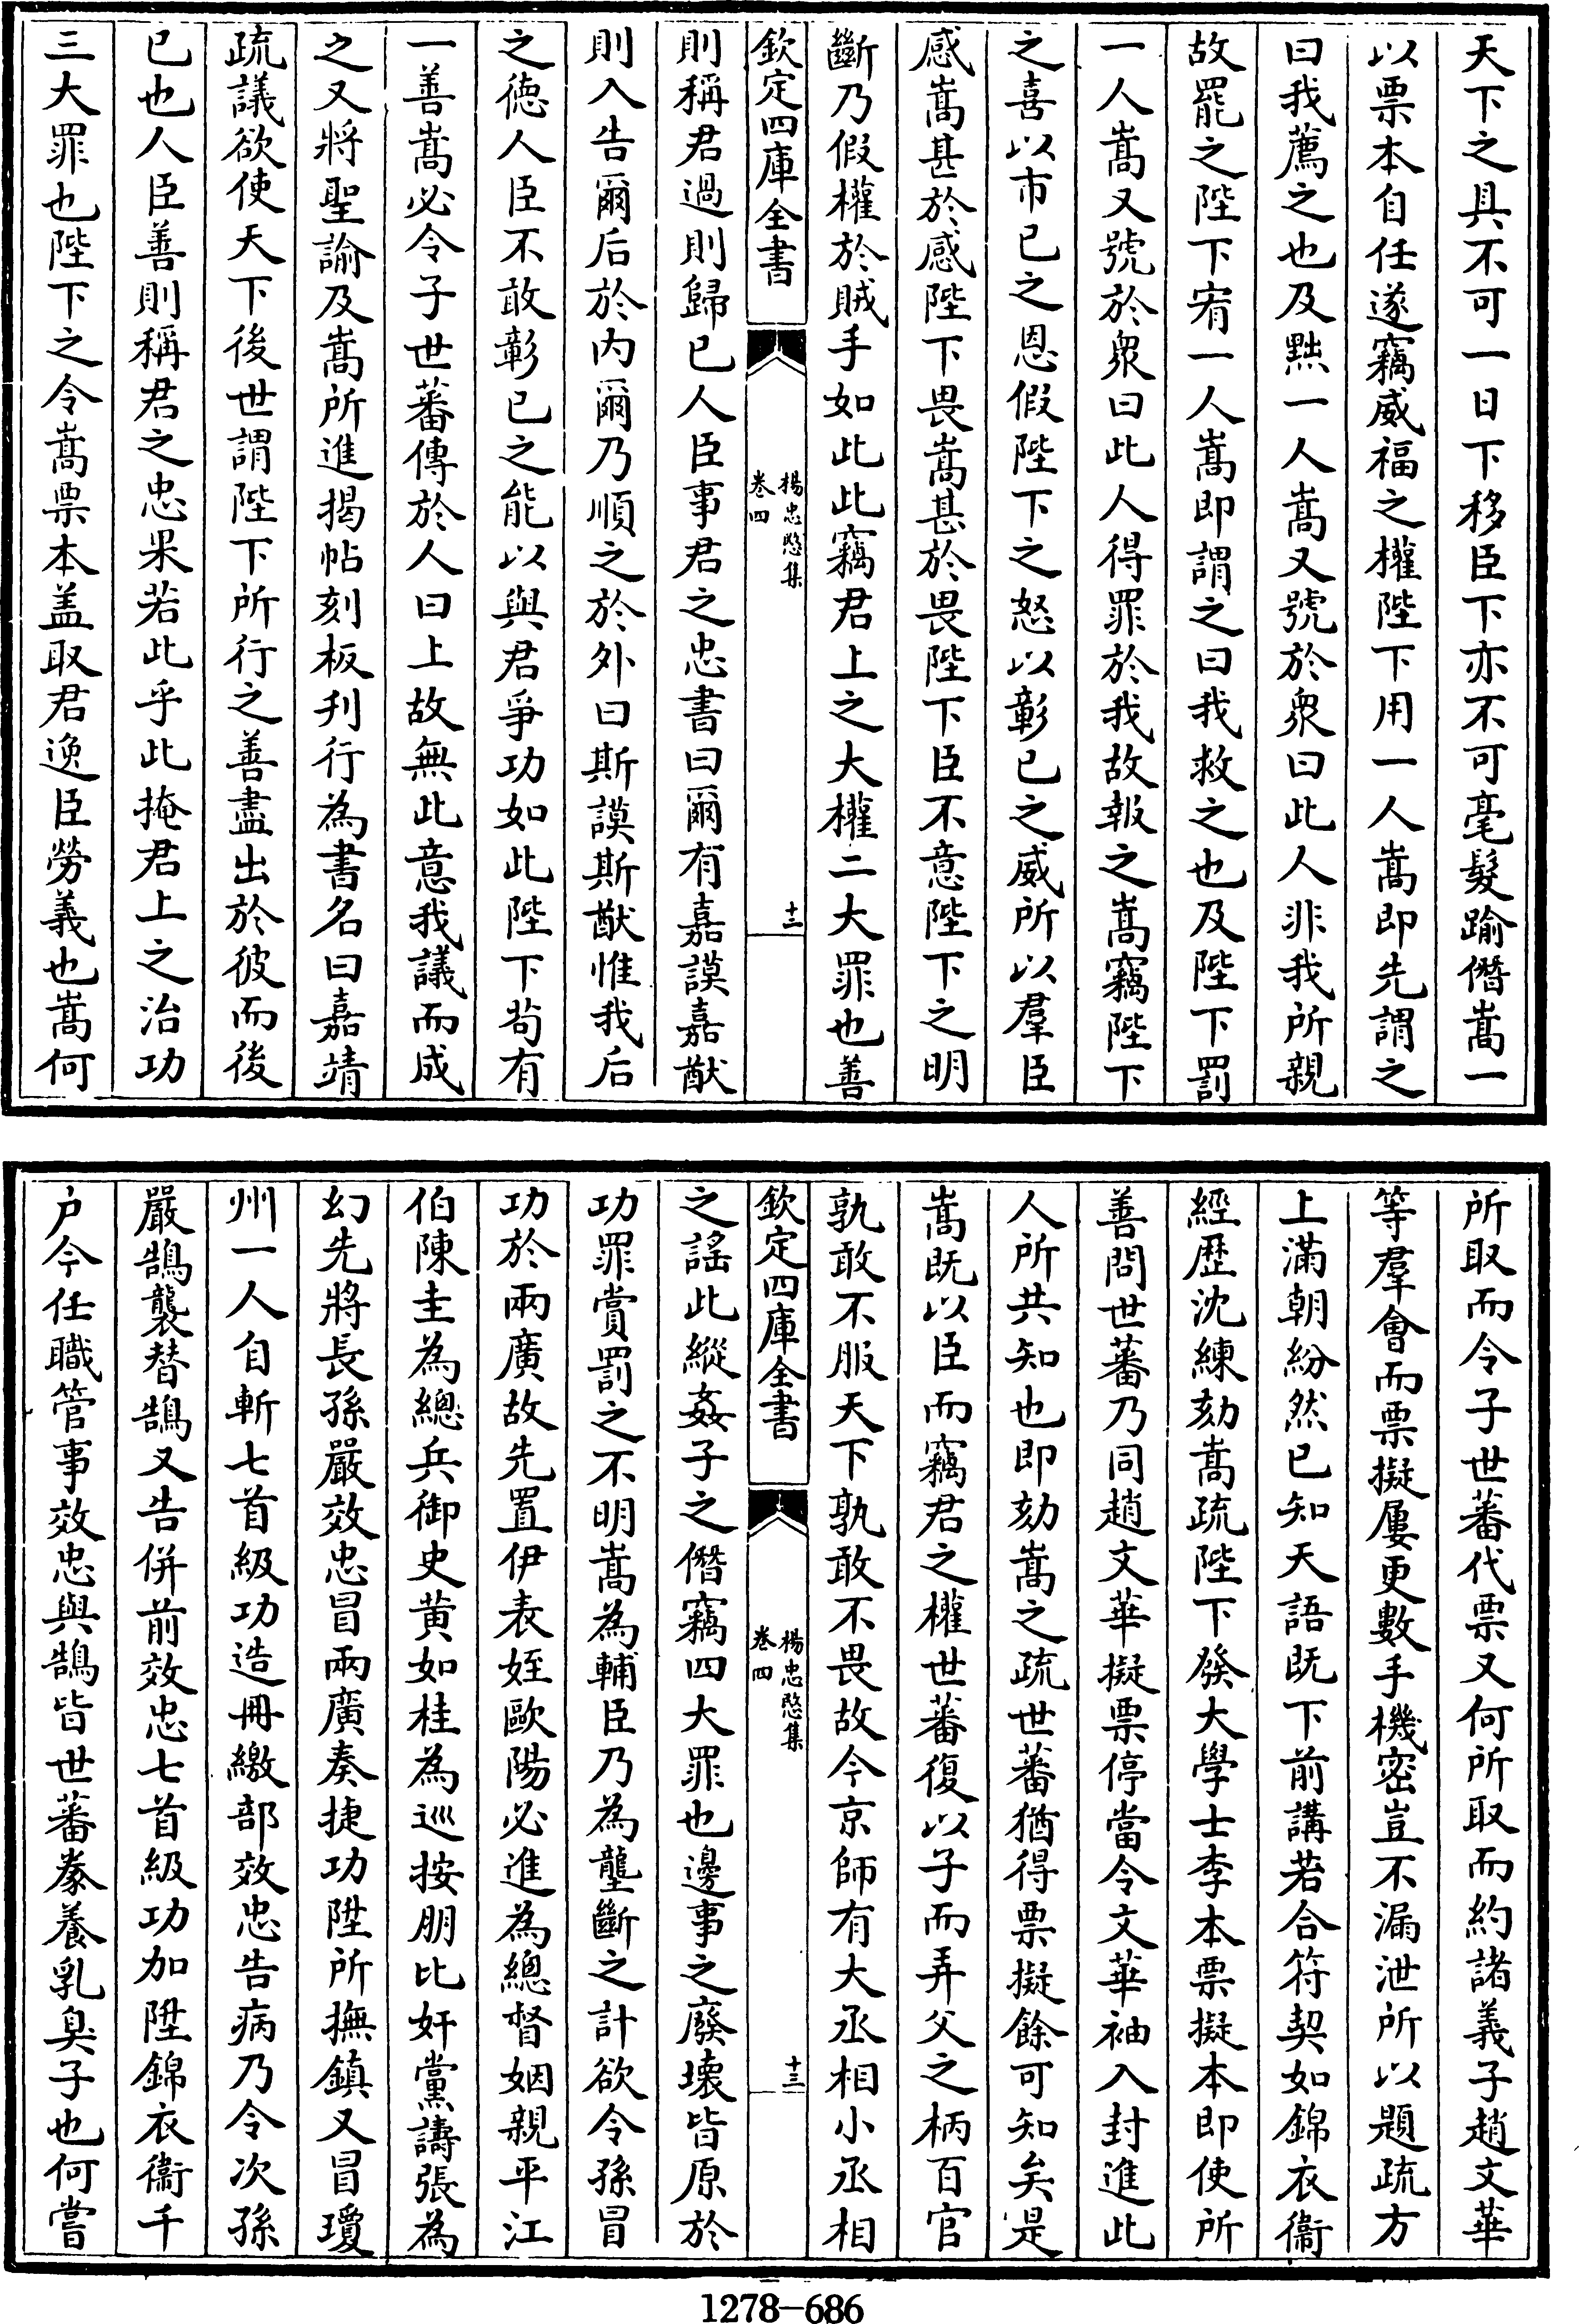 天下之具不可一日下移臣下亦不可毫髮踰僭嵩一
以票本自任遂竊威福之權陛下用一人嵩即先謂之
曰我薦之也及黜一人嵩又號於衆曰此人非我所親
故罷之陛下宥一人嵩即謂之曰我救之也及陛下罰
一人嵩又號於衆曰此人得罪於我故報之嵩竊陛下
之喜以市已之恩假陛下之怒以彰已之威所以羣臣
感嵩甚於感陛下畏嵩甚於畏陛下臣不意陛下之明
斷乃假權於賊手如此此竊君上之大權二大罪也善
欽定四庫全書
楊忠愍集
卷四
十二
則稱君過則歸已人臣事君之忠書曰爾有嘉謨嘉猷
則入告爾后於内爾乃順之於外曰斯謨斯猷惟我后
之德人臣不敢彰已之能以與君爭功如此陛下茍有
一善嵩必令子世蕃傳於人曰上故無此意我議而成
之又將聖諭及嵩所進揭帖刻板刋行為書名曰嘉靖
疏議欲使天下後世謂陛下所行之善盡出於彼而後
已也人臣善則稱君之忠果若此乎此掩君上之治功
三大罪也陛下之令嵩票本盖取君逸臣勞義也嵩何
所取而令子世蕃代票又何所取而約諸義子趙文華
等羣會而票擬屢更數手機密豈不漏泄所以題疏方
上滿朝紛然已知天語既下前講若合符契如錦衣衞
經歷沈練劾嵩疏陛下發大學士李本票擬本即使所
善問世蕃乃同趙文華擬票停當令文華袖入封進此
人所共知也即劾嵩之疏世蕃猶得票擬餘可知矣是
嵩既以臣而竊君之權世蕃復以子而弄父之柄百官
孰敢不服天下孰敢不畏故今京師有大丞相小丞相
欽定四庫全書
楊忠愍集
卷四
十三
之謡此縱姦子之僭竊四大罪也邊事之廢壊皆原於
功罪賞罰之不明嵩為輔臣乃為壟斷之計欲令孫冒
功於兩廣故先置伊表姪歐陽必進為總督姻親平江
伯陳圭為總兵御史黄如桂為巡按朋比奸黨譸張為
幻先將長孫嚴效忠冒兩廣奏捷功陞所撫鎮又冒瓊
州一人自斬七首級功造冊繳部效忠告病乃令次孫
嚴鵠襲替鵠又告併前效忠七首級功加陞錦衣衞千
户今任職管事效忠與鵠皆世蕃豢養乳臭子也何嘗
1278—686